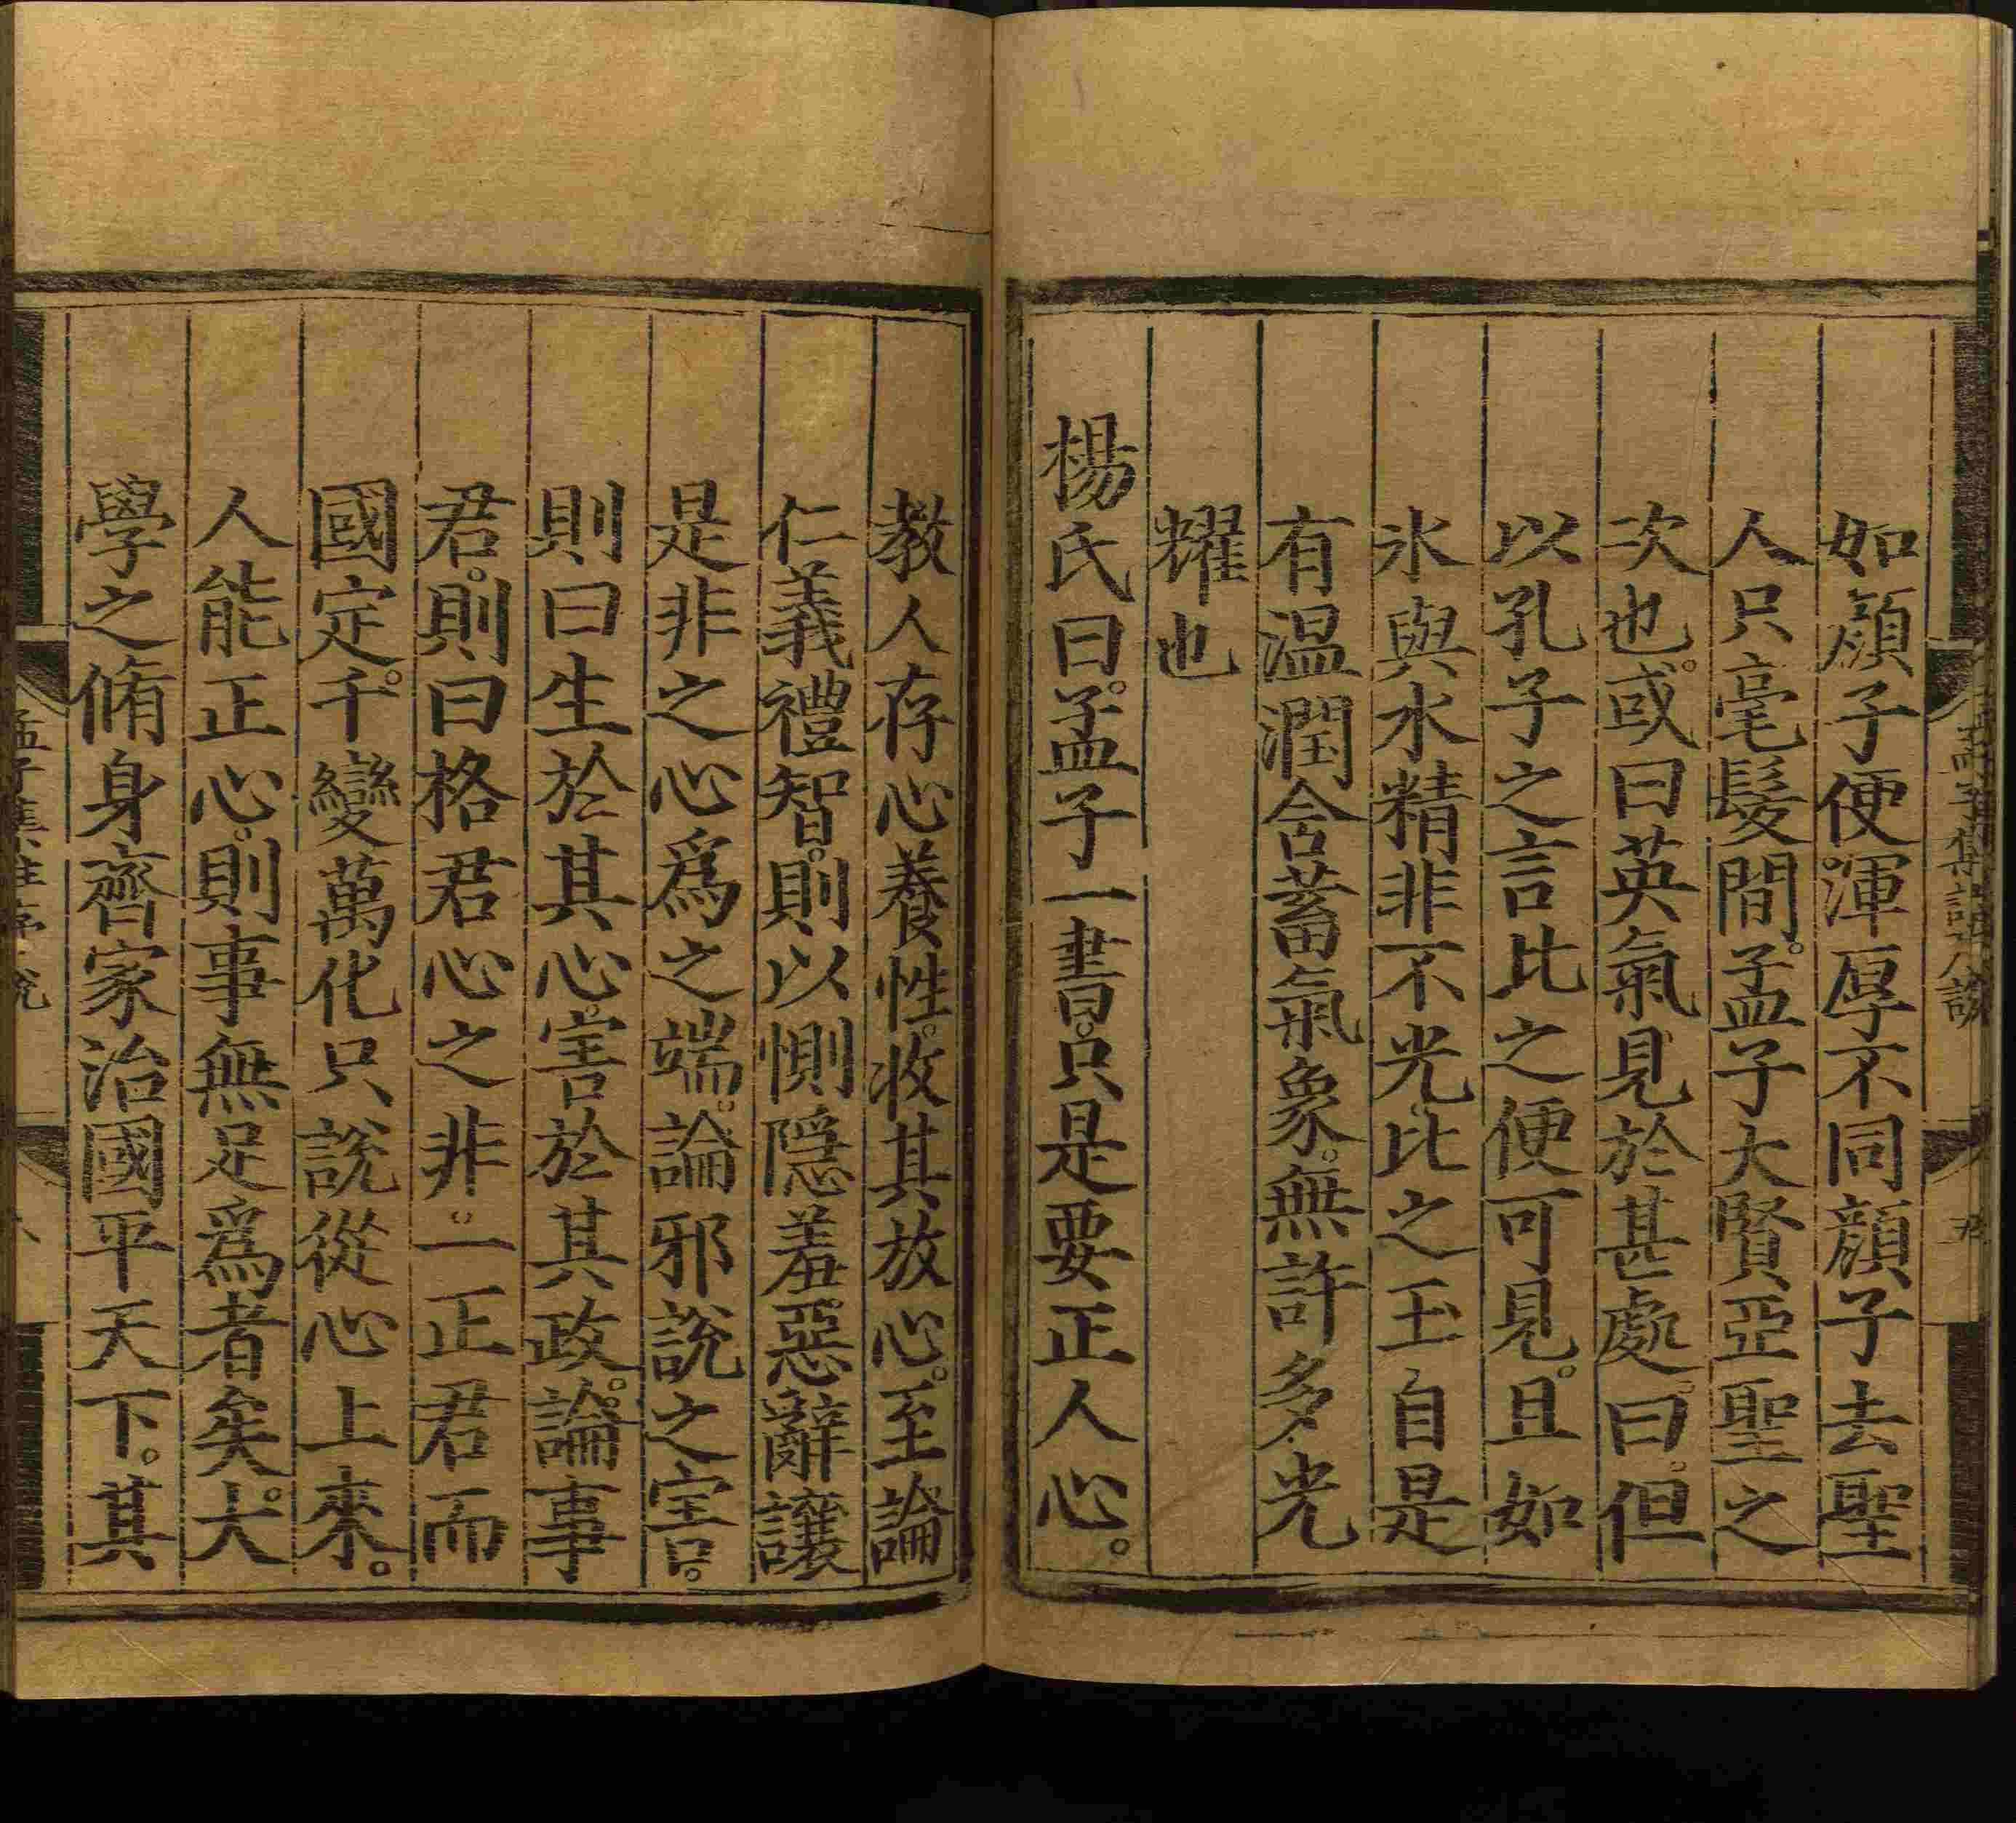 如顔子便渾厚不同顔子去聖
人只毫髮間。孟子大賢亞聖之
次也。或曰英氣見於甚處曰。但
以孔子之言比之便可見。且如
氷與水精非不光。比之玉自是
有温潤含蓄氣象。無許多光
耀也
楊氏曰。孟子一書。只是要正人心。
教人存心養性。收其放心。至論
仁義禮智。則以惻隠羞惡辭讓
是非之心爲之端。論邪說之害。
則曰生於其心。害於其政。論事
君。則曰格君心之非。一正君而
國定。千變萬化只說從心上來。
人能正心。則事無足爲者矣。大
學之脩身齊家治國平天下。其